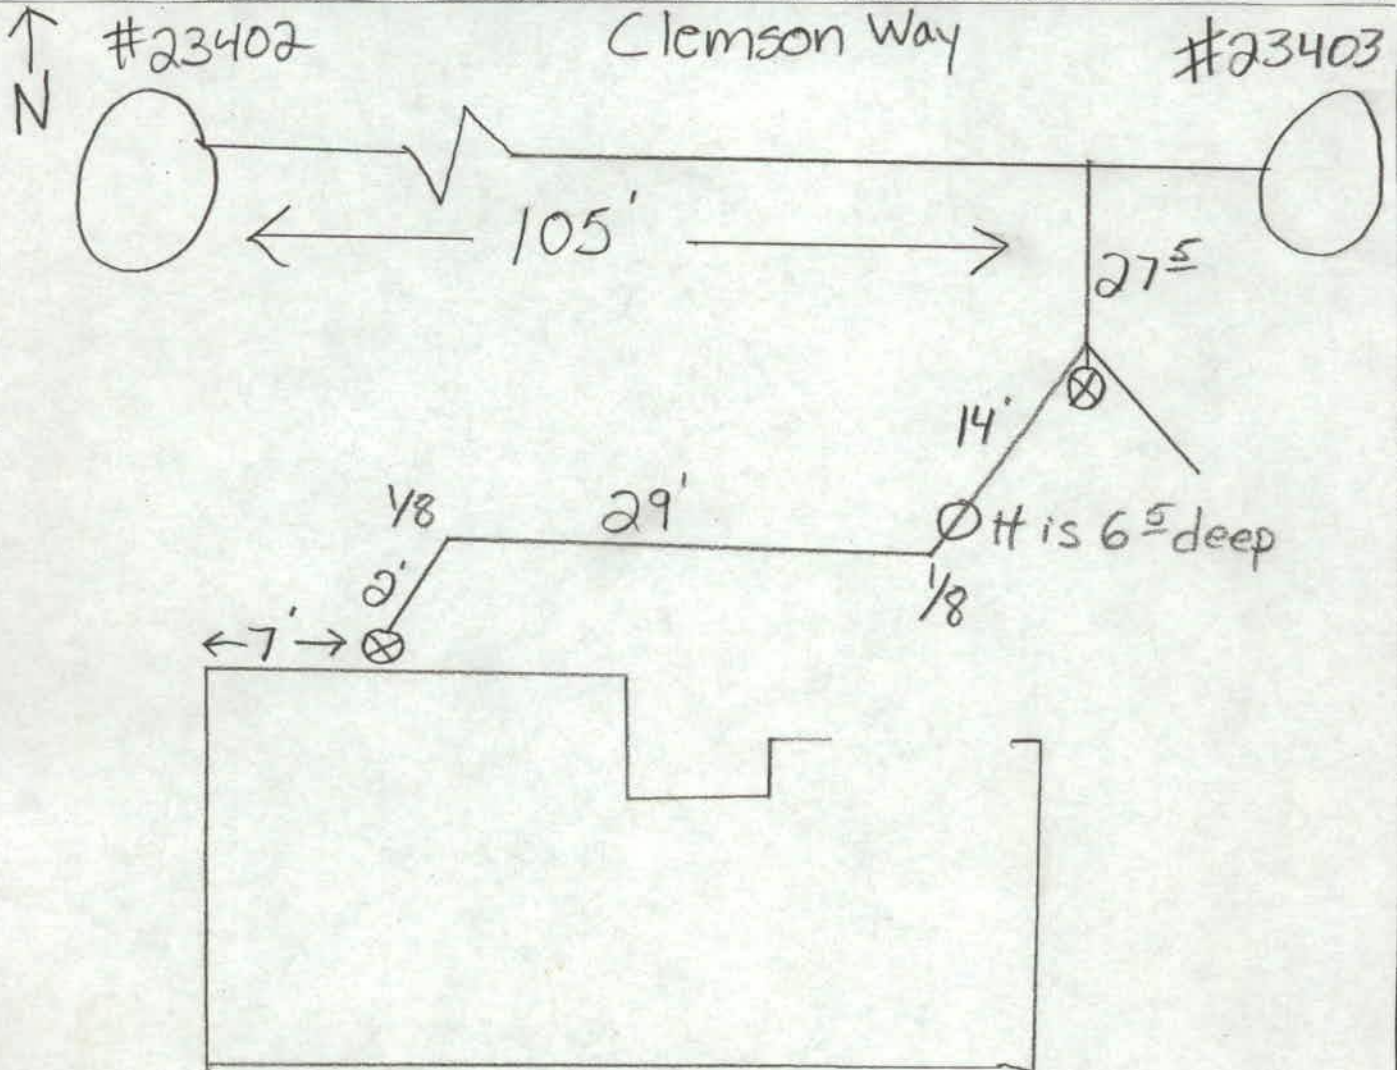 #23402 Clemson Way #23403
N
105'
27 5
14'
1/8 29'
It is 6 5 deep
2' 1/8
←7'→